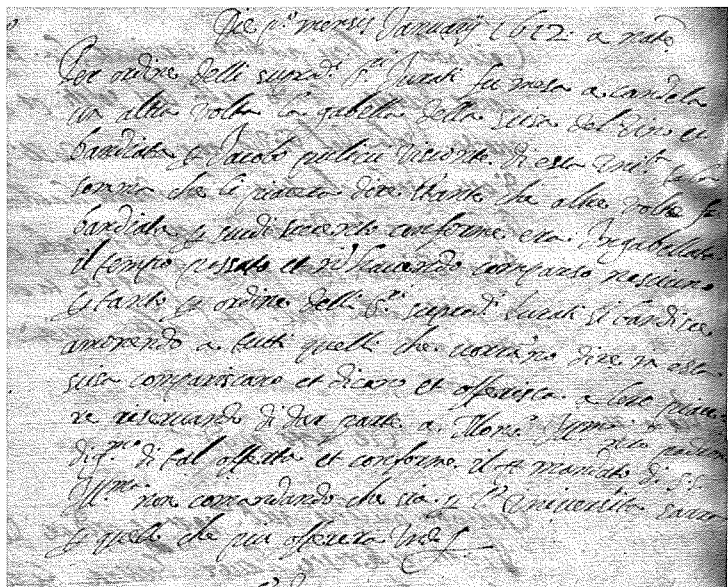 Die p.º mensis Januarij 1612 a nat.e
Per ordine delli suprad.i S.ri Jurati fu messa a candela
un altra volta la gabella della susa del Vin et
bandiata p Jacobo pulicii visconte di essa Uni.ta
somma che li piacera dire stante che altre volte fu
bandiata p scudi conforme era Ingabellata
il tempo passato et nõ havendo comparso nesciuno
p tanto p ordine delli S.ri suprad.i Jurati si bandire
amonendo a tutti quelli che vorrano dire in essa
susa compariscano et dicano et offerisca a loro piace
re riservando di dar parte a Mons.r Ill.mo
di tal offerta et conforme il mandato di S.S.
Ill.ma non comandando che sia p l' Università sarra
p quello che piu offerera Unde